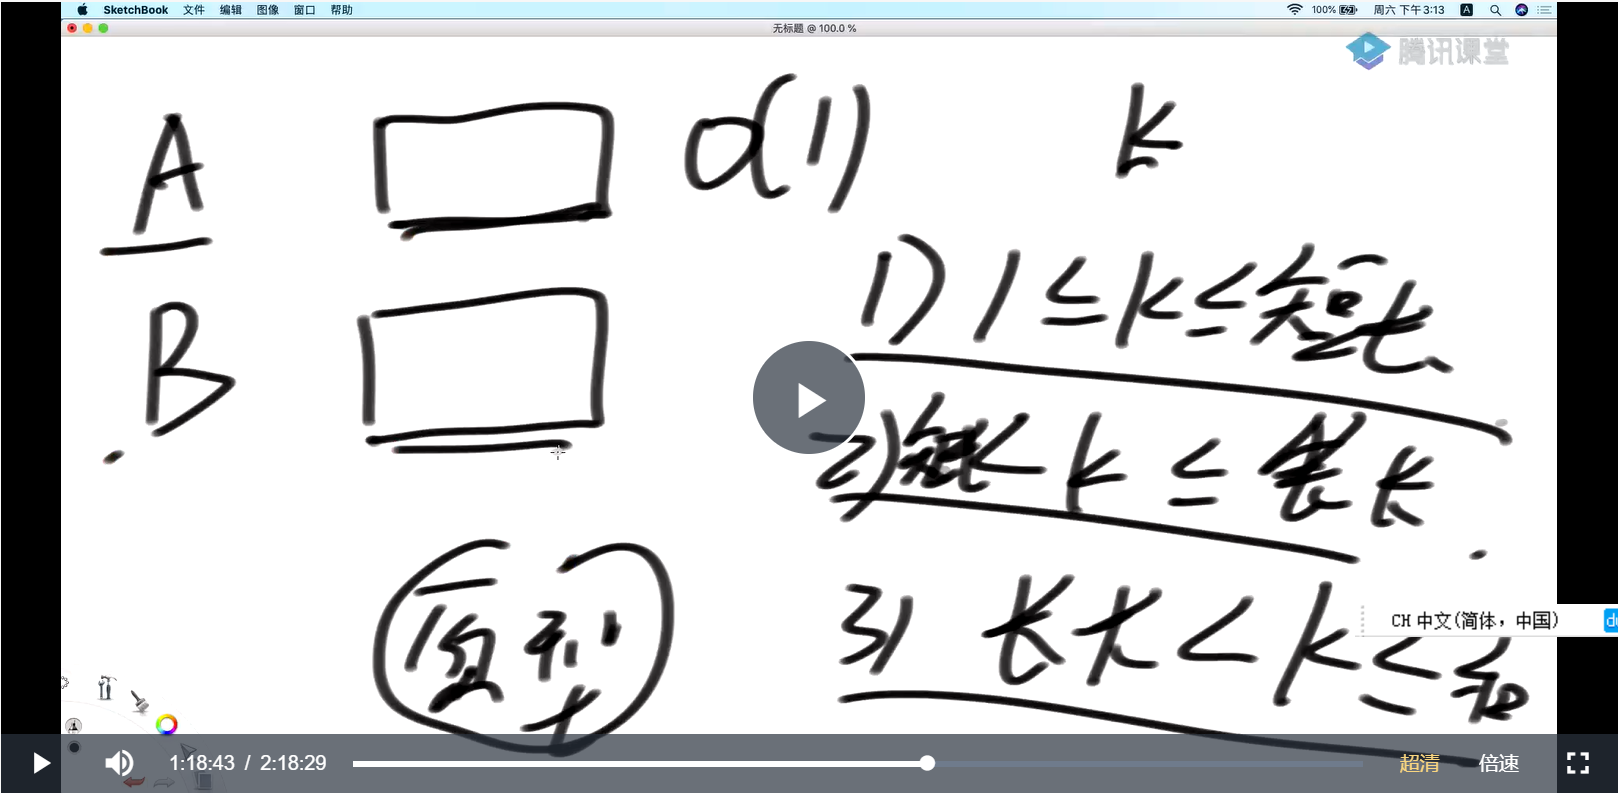 SketchBook 文件 编辑 图像 窗口 帮助 100% 周六 下午3:13 A
无标题 @ 100.0 %
腾讯课堂
A O(1) k
1) 1 ≤ k ≤ 短长
B
2) 短长 < k ≤ 长长
原型
3) 长长 < k ≤
CH 中文(简体，中国)
1:18:43 / 2:18:29 超清 倍速